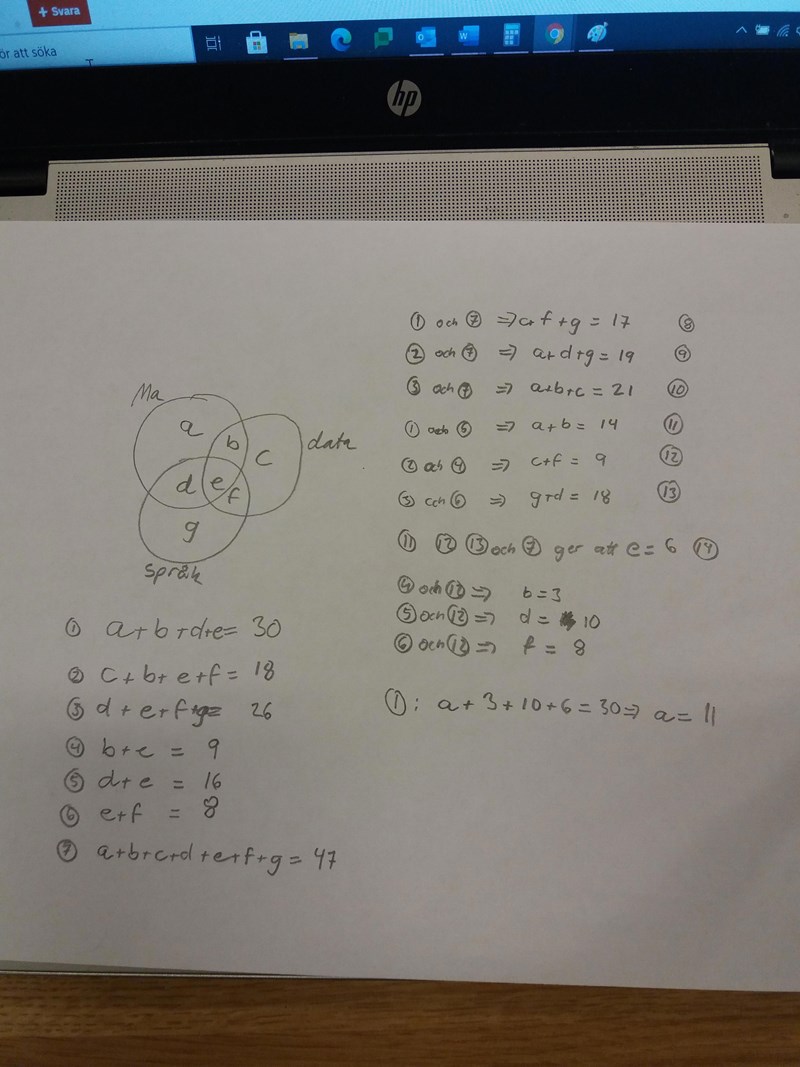 + Svara
ör att söka
hp
Ma
a
b
c
data
d
e
f
g
språk
① a+b+d+e= 30
② c+b+e+f= 18
③ d+e+f+g= 26
④ b+e = 9
⑤ d+e = 16
⑥ e+f = 8
⑦ a+b+c+d+e+f+g = 47
① och ⑦ => c+f+g = 17 ⑧
② och ⑦ => a+d+g = 19 ⑨
③ och ⑦ => a+b+c = 21 ⑩
① och ⑤ => a+b = 14 ⑪
② och ④ => c+f = 9 ⑫
③ och ⑥ => g+d = 18 ⑬
⑪ ⑫ ⑬ och ⑦ ger att e= 6 ⑭
④ och ⑫ => b=3
⑤ och ⑫ => d = 10
⑥ och ⑫ => f = 8
①: a+3+10+6=30=> a= 11